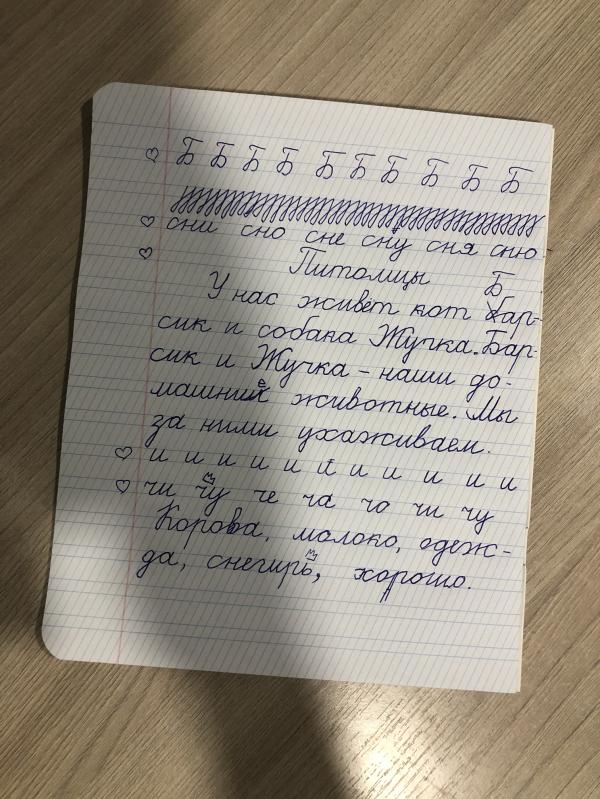 Б Б Б Б Б Б Б Б Б Б
сни сно сне сну сня сню
Питомцы Б
У нас живёт кот Бар-
сик и собака Жучка. Бар-
сик и Жучка – наши до-
машние животные. Мы
за ними ухаживаем.
и и и и и и и и и и и
чи чу че ча чо чи чу
Корова, молоко, одеж-
да, снегирь, хорошо.